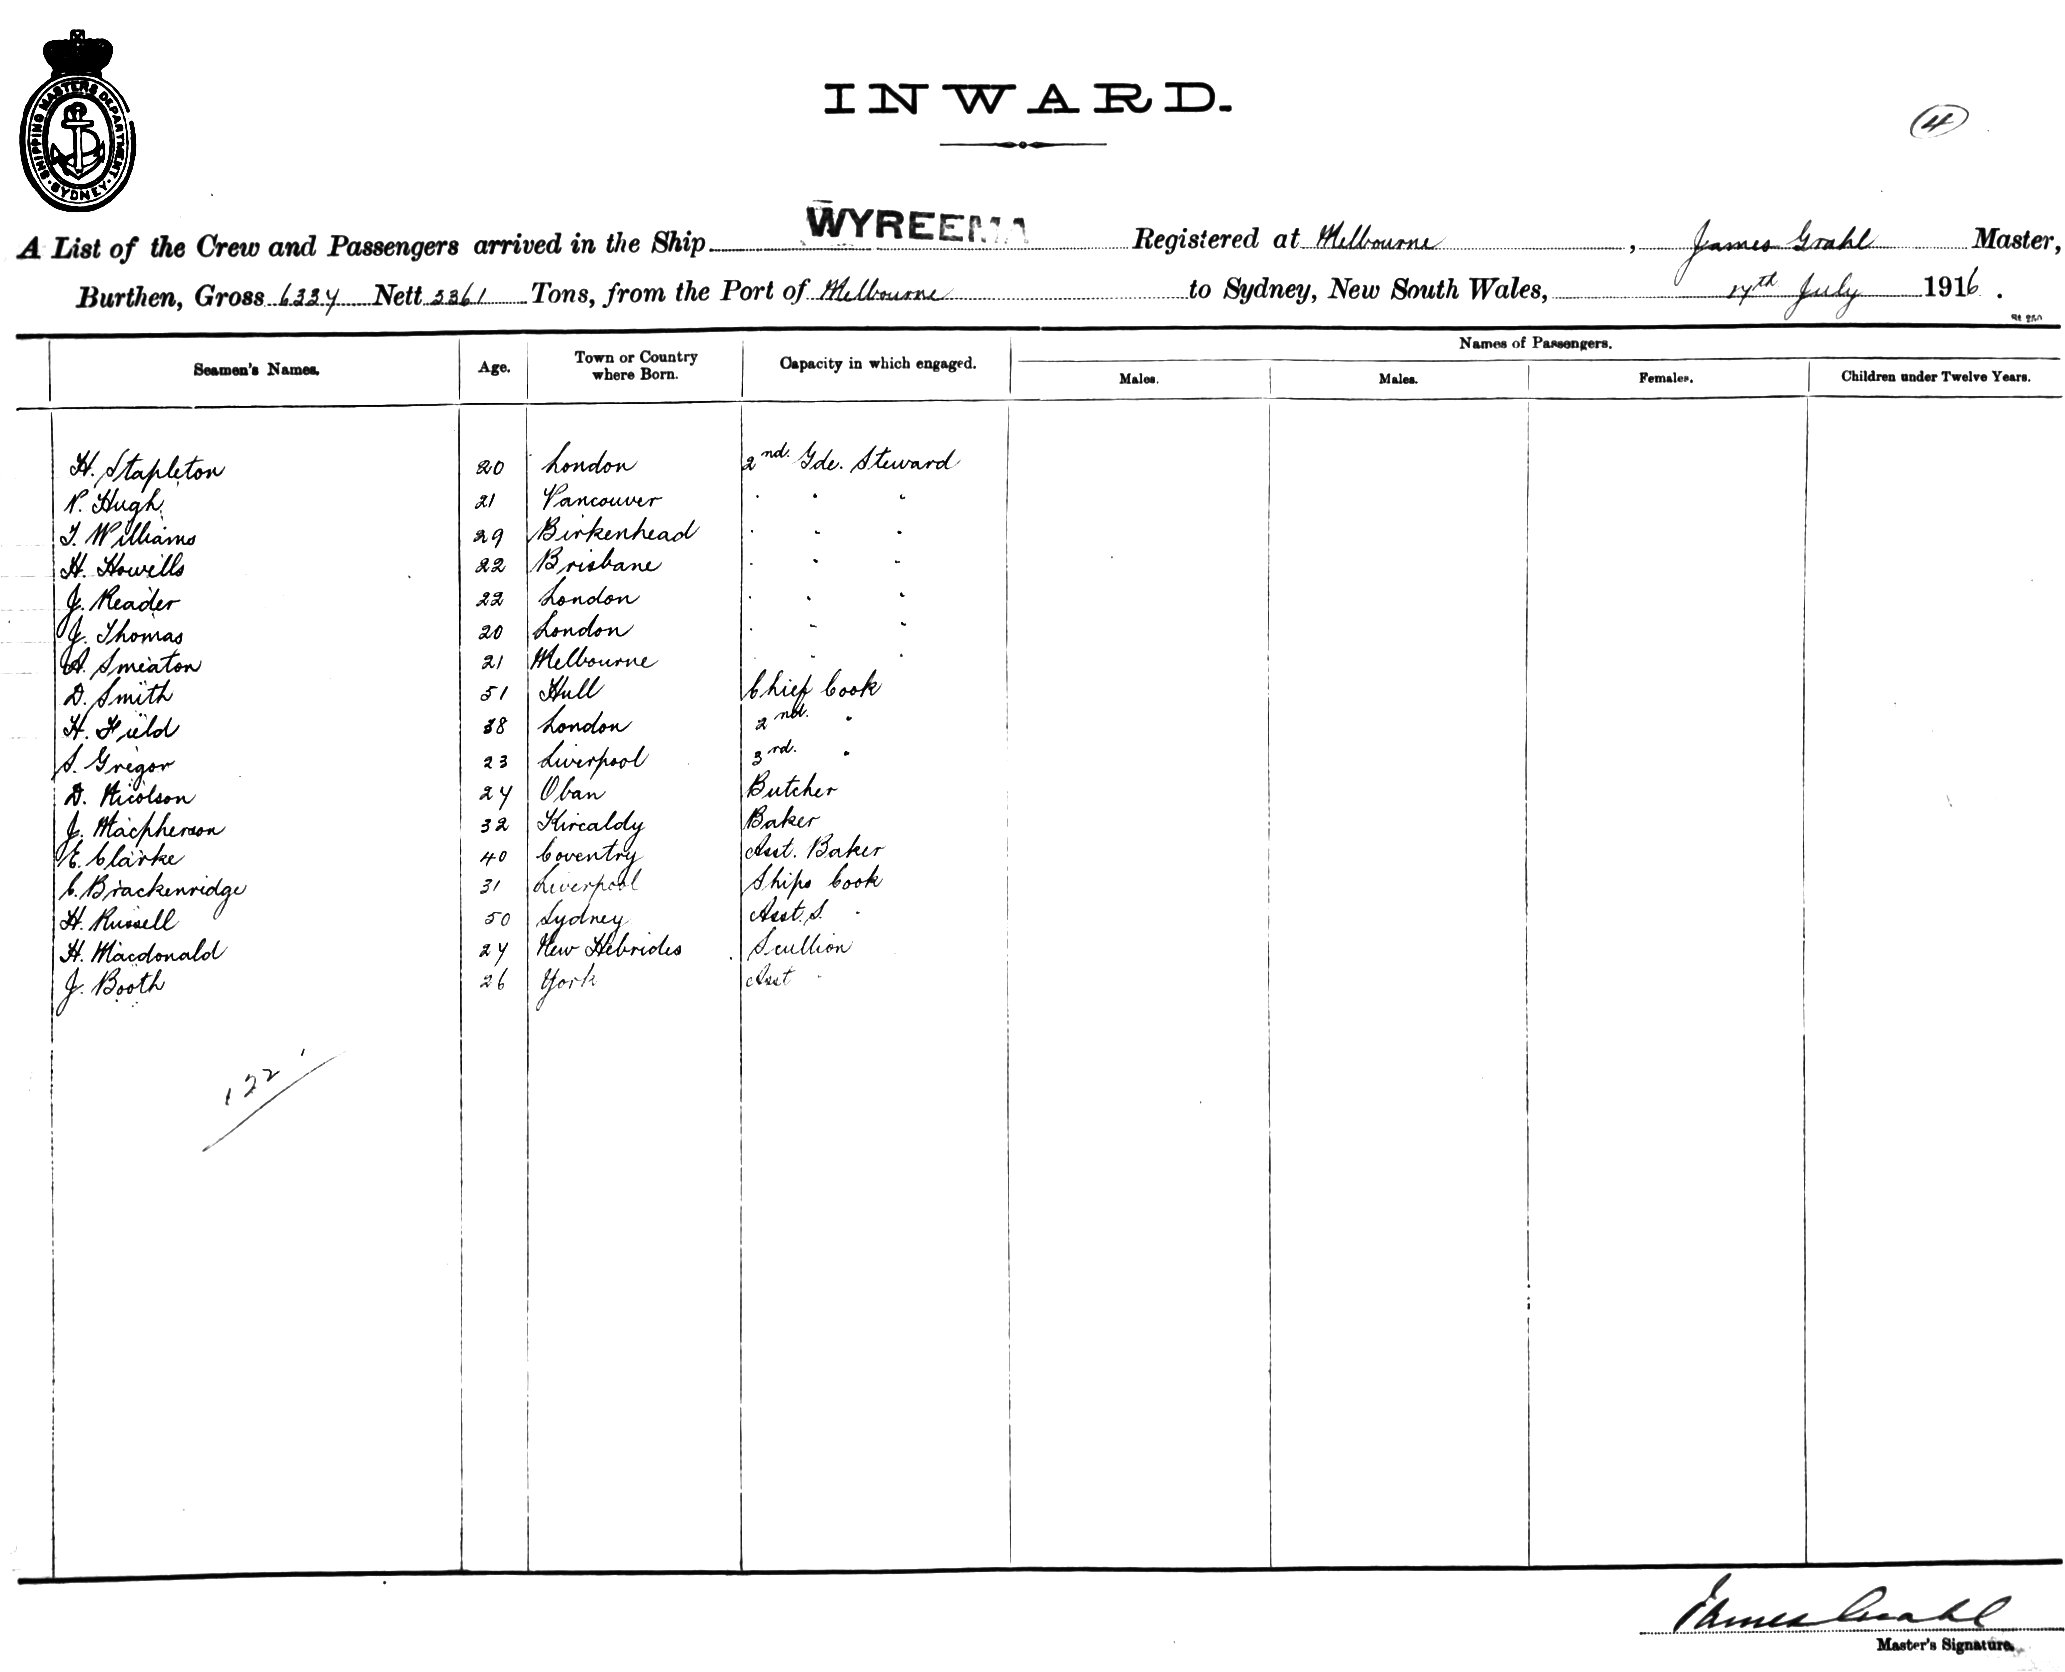 SHIPPING MASTERS DEPARTMENT · SYDNEY ·
INWARD.
(4)
A List of the Crew and Passengers arrived in the Ship WYREEMA Registered at Melbourne, James Grahl Master,
Burthen, Gross 6334 Nett 3361 Tons, from the Port of Melbourne to Sydney, New South Wales, July 1916.
Seamen's Names. Age. Town or Country where Born. Capacity in which engaged. Names of Passengers.
Males. Males. Females. Children under Twelve Years.
H. Stapleton 20 London 2nd. Gde. Steward
P. Hugh 21 Vancouver " " "
T. Williams 29 Birkenhead " " "
H. Howells 22 Brisbane " " "
J. Reader 22 London " " "
J. Thomas 20 London " " "
A. Smeaton 21 Melbourne " " "
D. Smith 51 Hull Chief Cook
H. Field 38 London 2nd. "
S. Gregor 23 Liverpool 3rd. "
D. Nicolson 24 Oban Butcher
J. Macpherson 32 Kircaldy Baker
E. Clarke 40 Coventry Asst. Baker
C. Brackenridge 31 Liverpool Ships Cook
H. Russell 50 Sydney Asst. S. "
H. Macdonald 24 New Hebrides Scullion
J. Booth 26 York Asst "
122
James Grahl
Master's Signature.